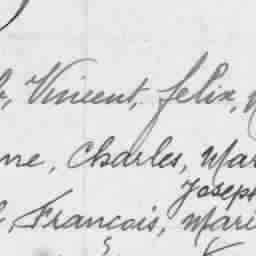 Vincent, Felix,
Charles, Mar
Joseph
François, Mari